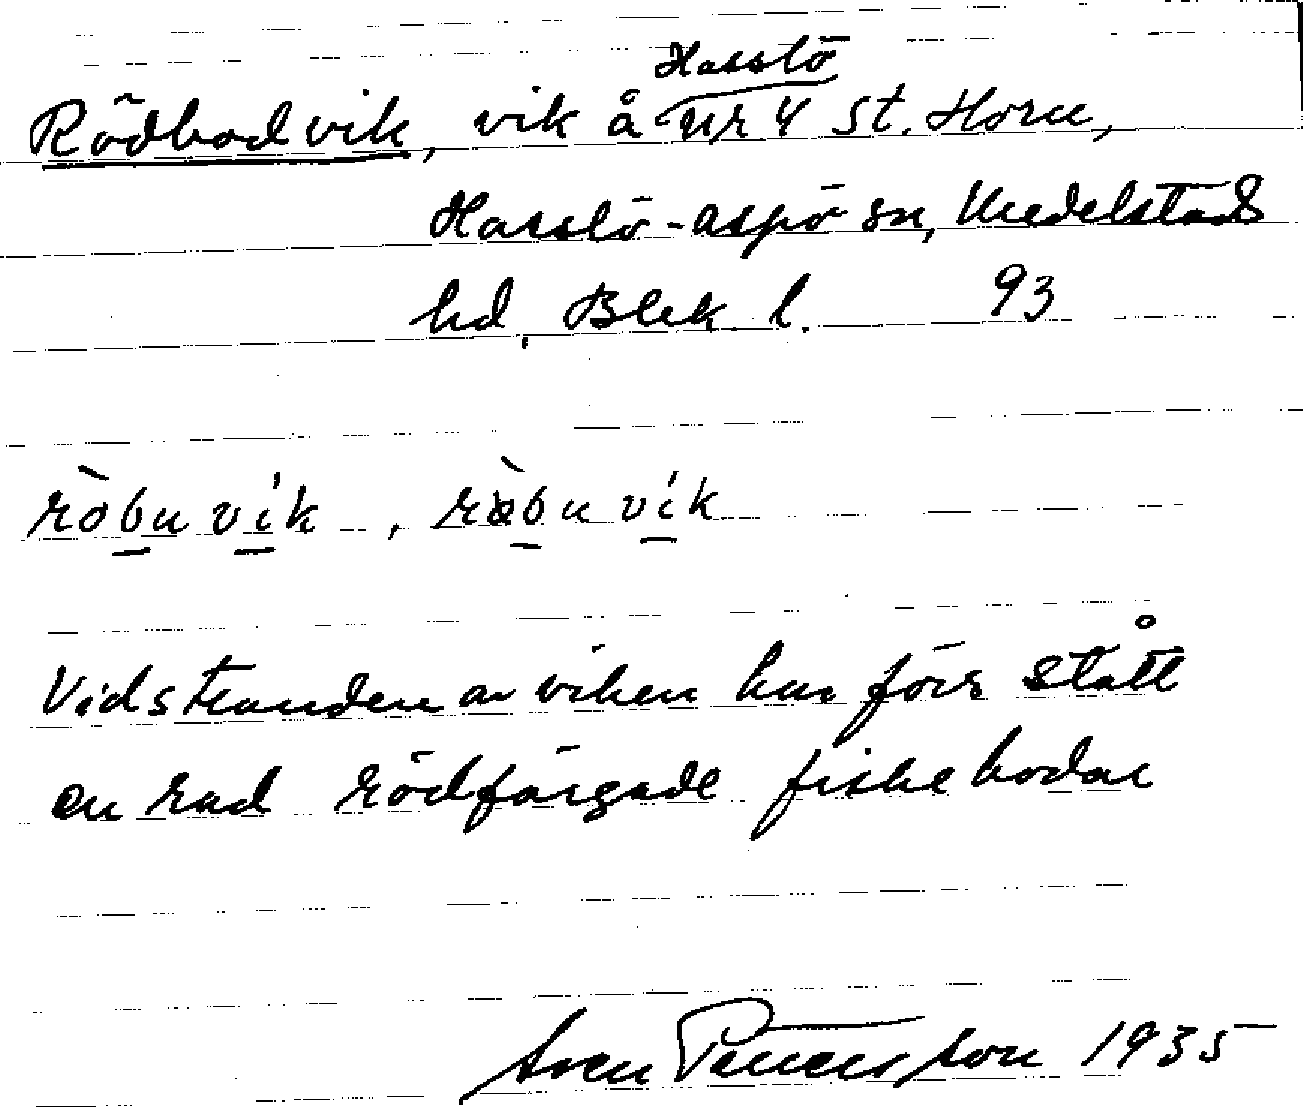 Hasslö
Rödbodvik, vik å nr 4 St. Horn,
Hasslö-Aspö sn, Medelstads
hd, Blek. l. 93
ròbu vík, ròbu vík
Vid stranden av viken har förr stått
en rad rödfärgade fiskebodar
Sven Pettersson 1935